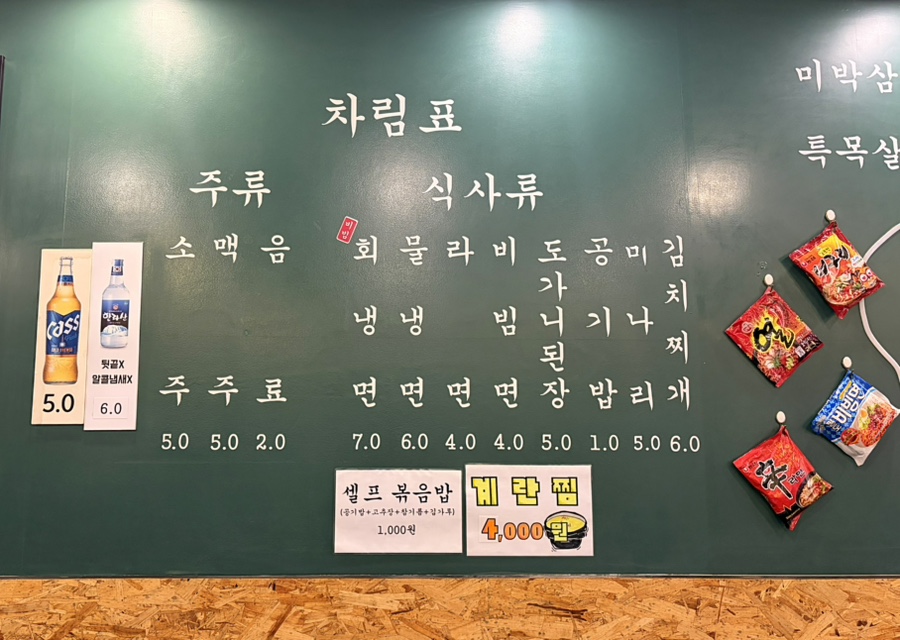 차림표
주류
소주 5.0
맥주 5.0
음료 2.0
식사류
비빔
회냉면 7.0
물냉면 6.0
라면 4.0
비빔면 4.0
도가니된장 5.0
공기밥 1.0
미나리 5.0
김치찌개 6.0
미박삼
특목살
Cass
5.0
한라산
뒷끝X
알콜냄새X
6.0
셀프 볶음밥
(공기밥+고추장+참기름+김가루)
1,000원
계란찜
4,000원
열
비빔면
辛